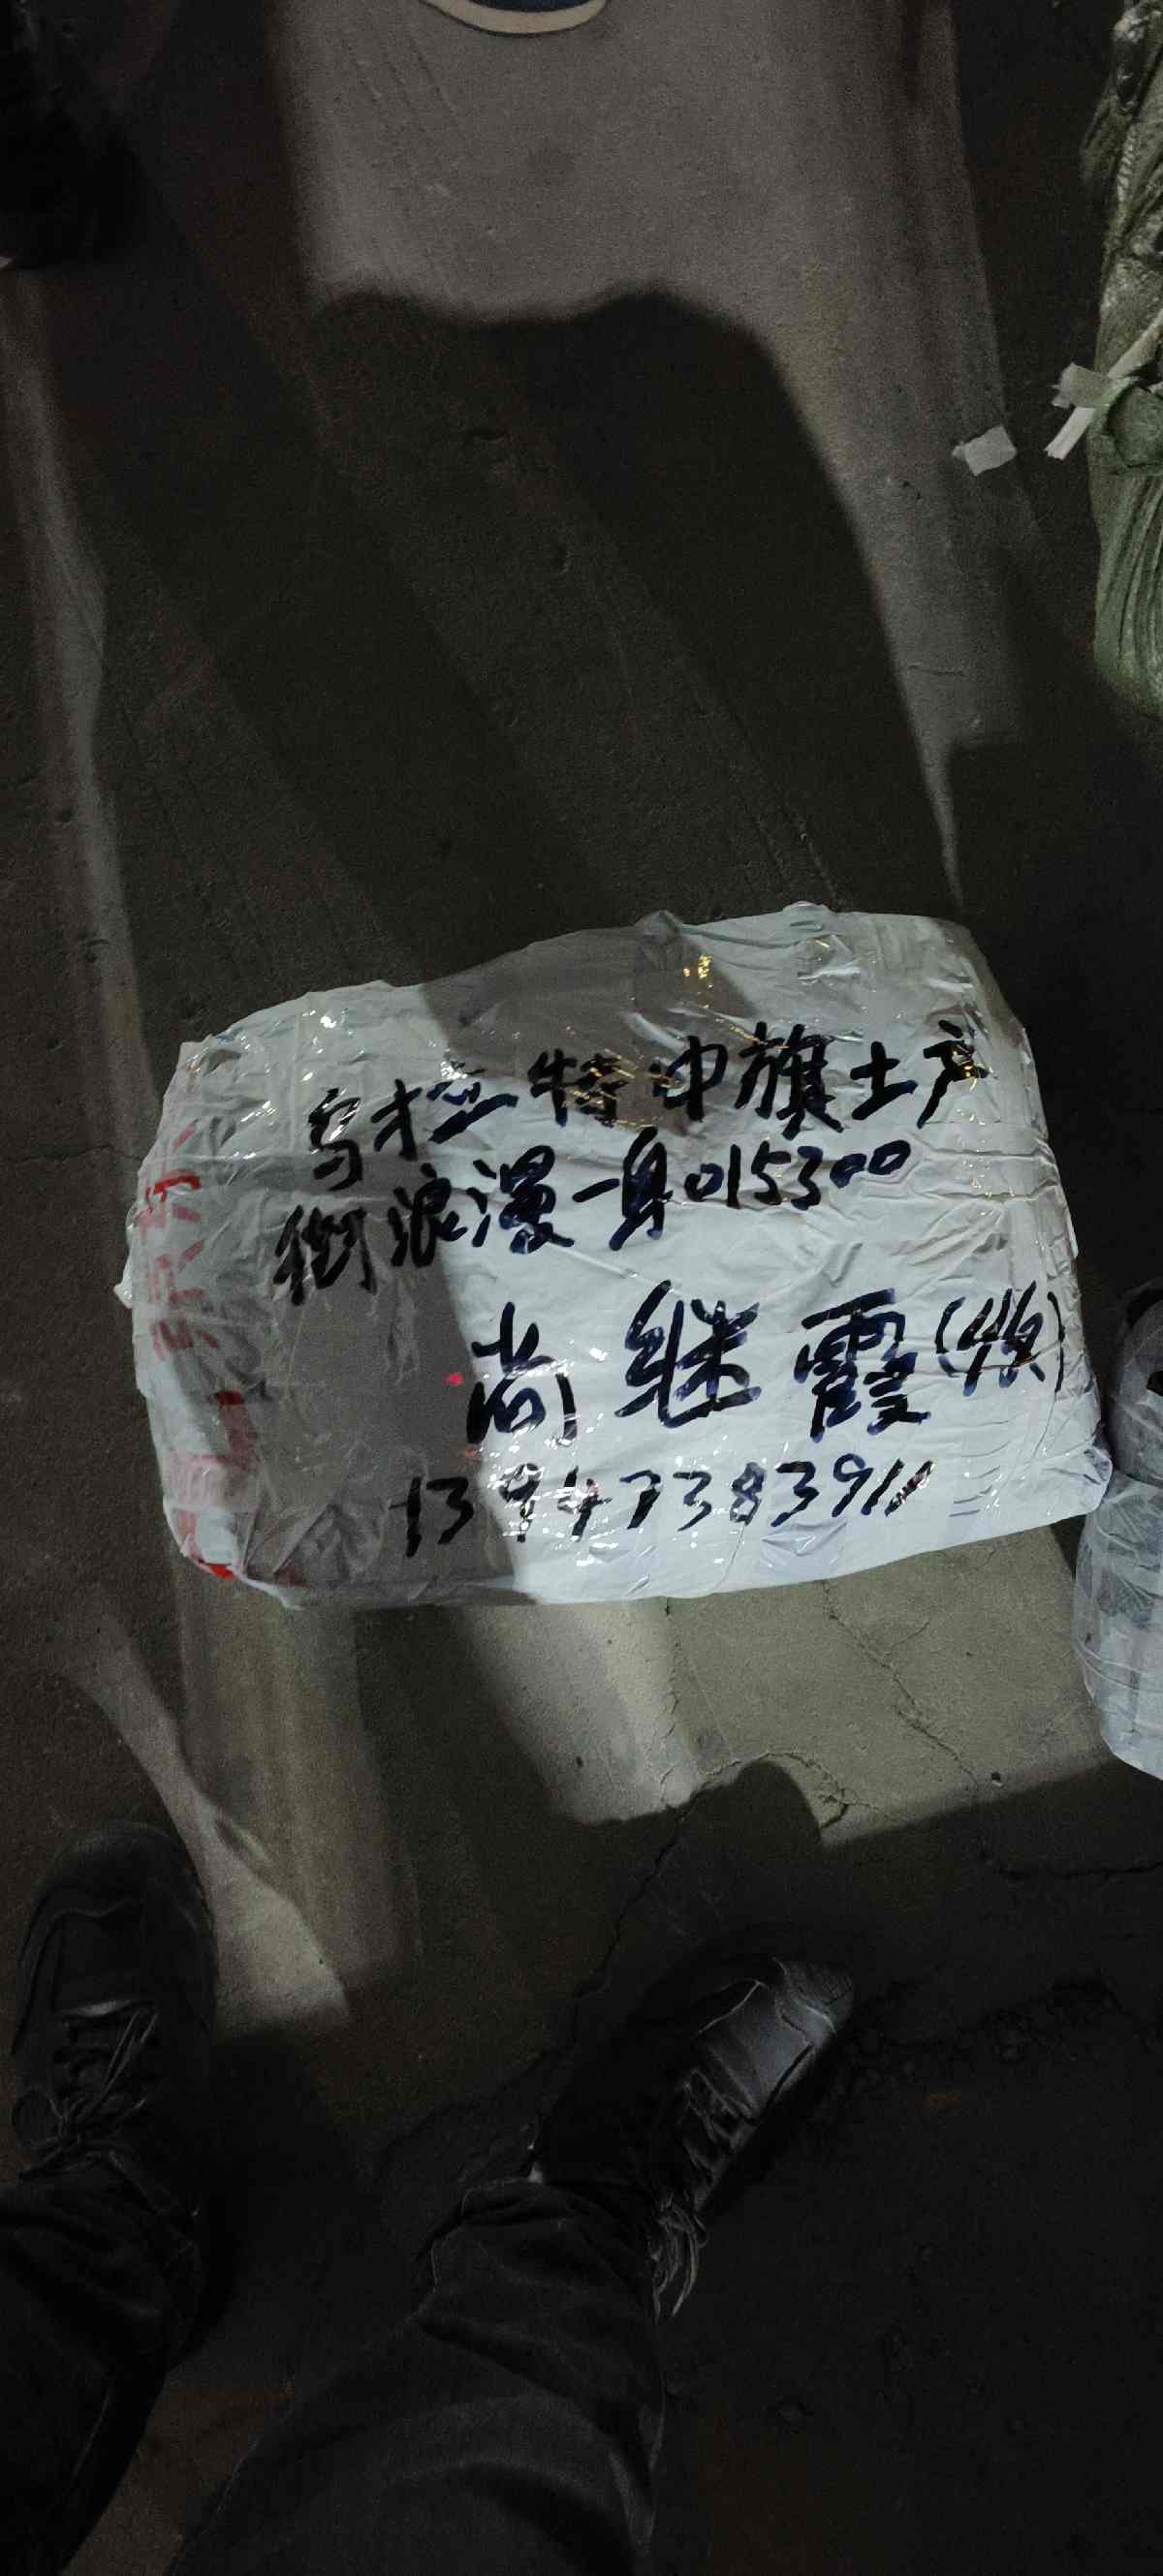 乌拉特中旗土产
街浪漫一身015300
尚继霞(收)
13947383911